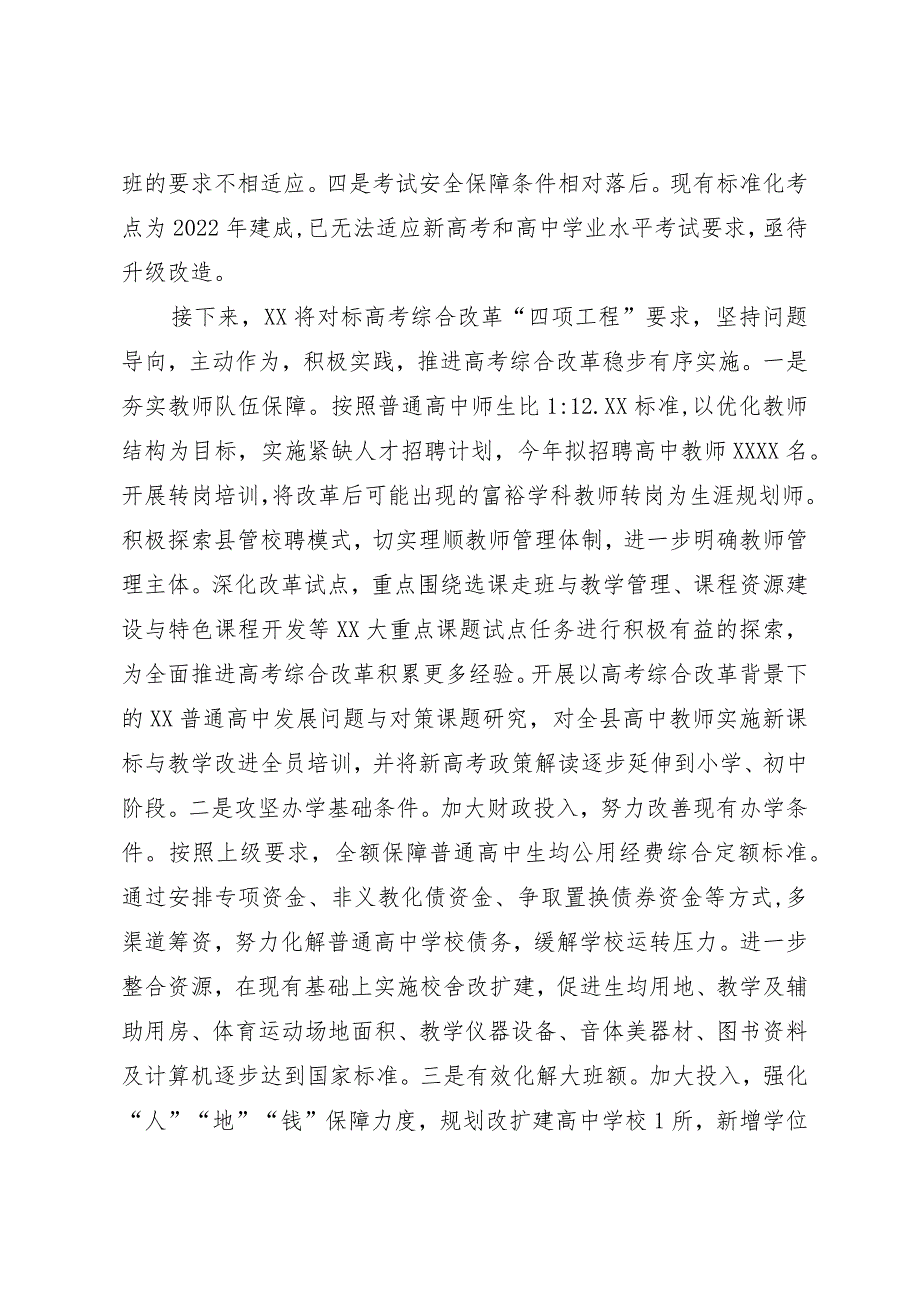 班的要求不相适应。四是考试安全保障条件相对落后。现有标准化考
点为 2022 年建成,已无法适应新高考和高中学业水平考试要求，亟待
升级改造。
接下来，XX 将对标高考综合改革“四项工程”要求，坚持问题
导向，主动作为，积极实践，推进高考综合改革稳步有序实施。一是
夯实教师队伍保障。按照普通高中师生比 1:12.XX 标准,以优化教师
结构为目标，实施紧缺人才招聘计划，今年拟招聘高中教师 XXXX 名。
开展转岗培训,将改革后可能出现的富裕学科教师转岗为生涯规划师。
积极探索县管校聘模式，切实理顺教师管理体制，进一步明确教师管
理主体。深化改革试点，重点围绕选课走班与教学管理、课程资源建
设与特色课程开发等 XX 大重点课题试点任务进行积极有益的探索，
为全面推进高考综合改革积累更多经验。开展以高考综合改革背景下
的 XX 普通高中发展问题与对策课题研究，对全县高中教师实施新课
标与教学改进全员培训,并将新高考政策解读逐步延伸到小学、初中
阶段。二是攻坚办学基础条件。加大财政投入，努力改善现有办学条
件。按照上级要求，全额保障普通高中生均公用经费综合定额标准。
通过安排专项资金、非义教化债资金、争取置换债券资金等方式,多
渠道筹资，努力化解普通高中学校债务，缓解学校运转压力。进一步
整合资源，在现有基础上实施校舍改扩建，促进生均用地、教学及辅
助用房、体育运动场地面积、教学仪器设备、音体美器材、图书资料
及计算机逐步达到国家标准。三是有效化解大班额。加大投入，强化
“人”“地”“钱”保障力度，规划改扩建高中学校 1 所，新增学位